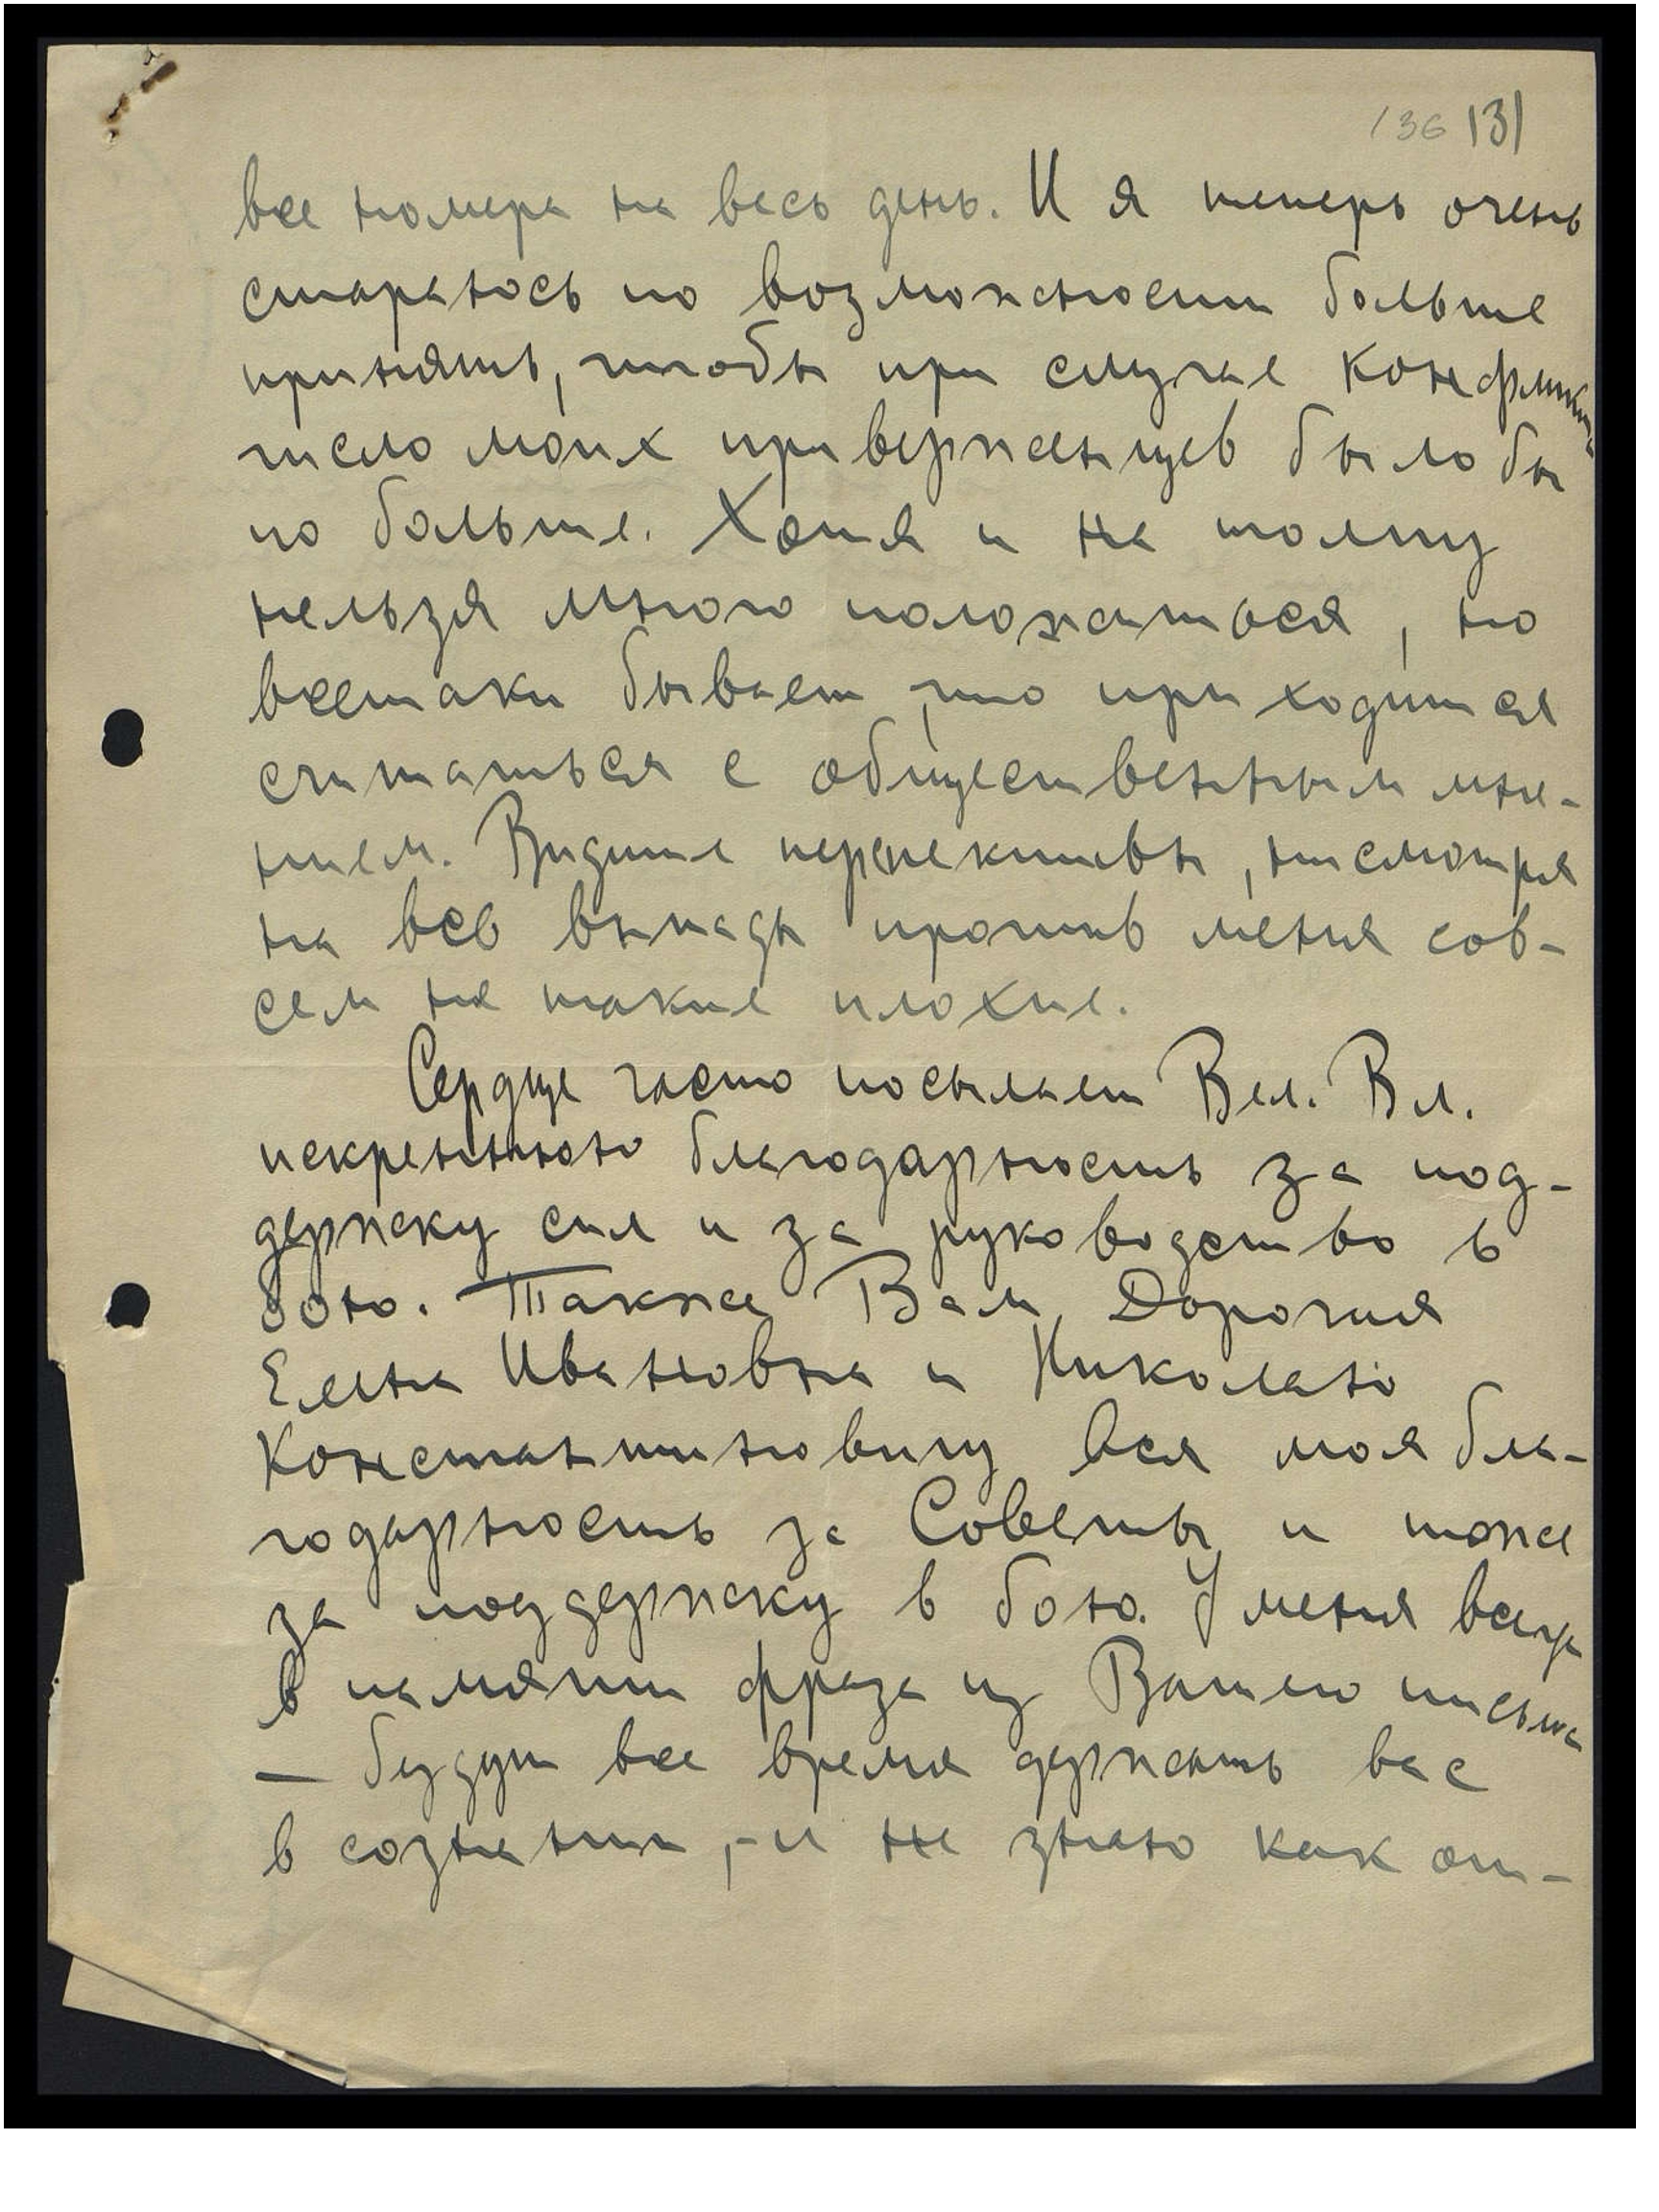 136 131
все номера на весь день. И я теперь очень
стараюсь по возможности больше
принять, чтобы при случае конфликта
число моих приверженцев было бы
по больше. Хотя и на толпу
нельзя много положиться, но
всетаки бывает, что приходится
считаться с общественным мне-
нием. Видите перспективы, несмотря
на все выпады против меня сов-
сем не такие плохие.
Сердце часто посылает Вел. Вл.
искреннюю благодарность за под-
держку сил и за руководство в
бою. Также Вам, Дорогия
Елена Ивановна и Николаю
Константиновичу вся моя бла-
годарность за Советы и тоже
за поддержку в бою. У меня всегда
в памяти фраза из Вашего письма
— будут все время держать вас
в сознании,- и не знаю как от-